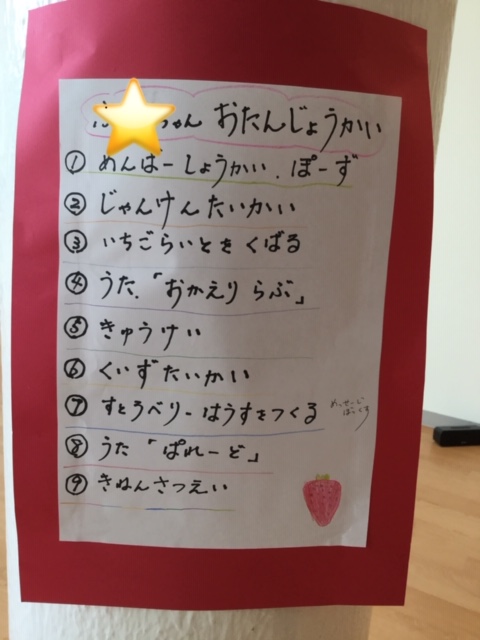 ちゃん おたんじょうかい
① めんばーしょうかい、ぽーず
② じゃんけんたいかい
③ いちごらいとをくばる
④ うた.「おかえり らぶ」
⑤ きゅうけい
⑥ くいずたいかい
⑦ すとろべりーはうすをつくる
めっせーじ
ぼっくす
⑧ うた「ぱれーど」
⑨ きねんさつえい